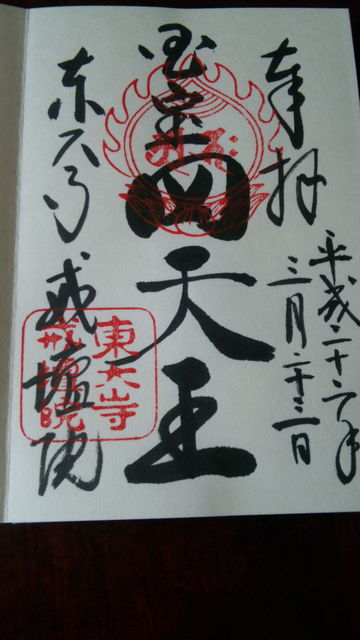 奉拝
平成二十六年
三月二十三日
国宝四天王
東大寺戒壇院
東大寺
戒壇院